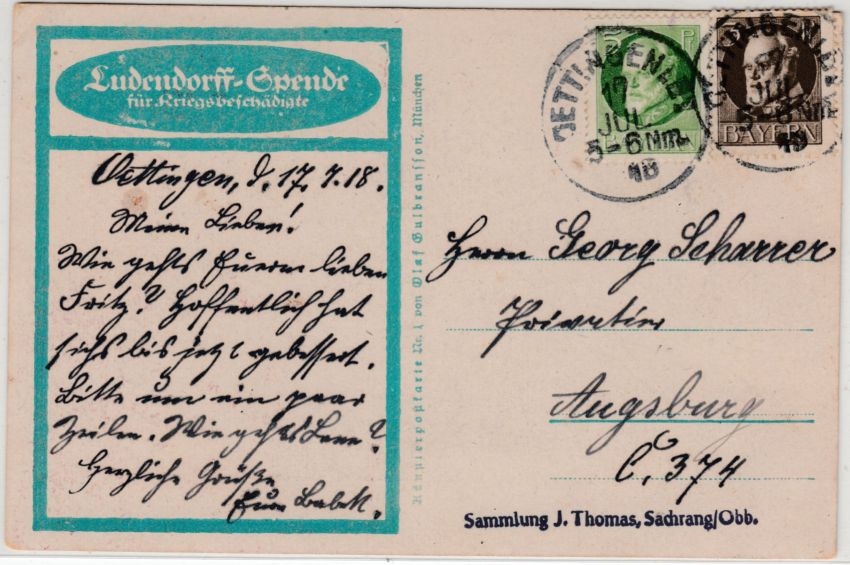 Ludendorff-Spende
für Kriegsbeschädigte
Oettingen, d. 17.7.18.
Meine Lieben!
Wie gehts Euerm lieben
Fritz? Hoffentlich hat
sichs bis jetzt gebessert.
Bitte um ein paar
Zeilen. Wie gehts Lene?
Herzliche Grüße
Eure Babett.
Künstlerpostkarte Nr. 1 von Olaf Gulbransson, München
OETTINGEN
17
JUL
5-6 Nm.
18
OETTINGEN
JUL
5-6 Nm.
18
BAYERN
Herrn Georg Scharrer
Privatier
Augsburg
C. 374
Sammlung J. Thomas, Sachrang/Obb.